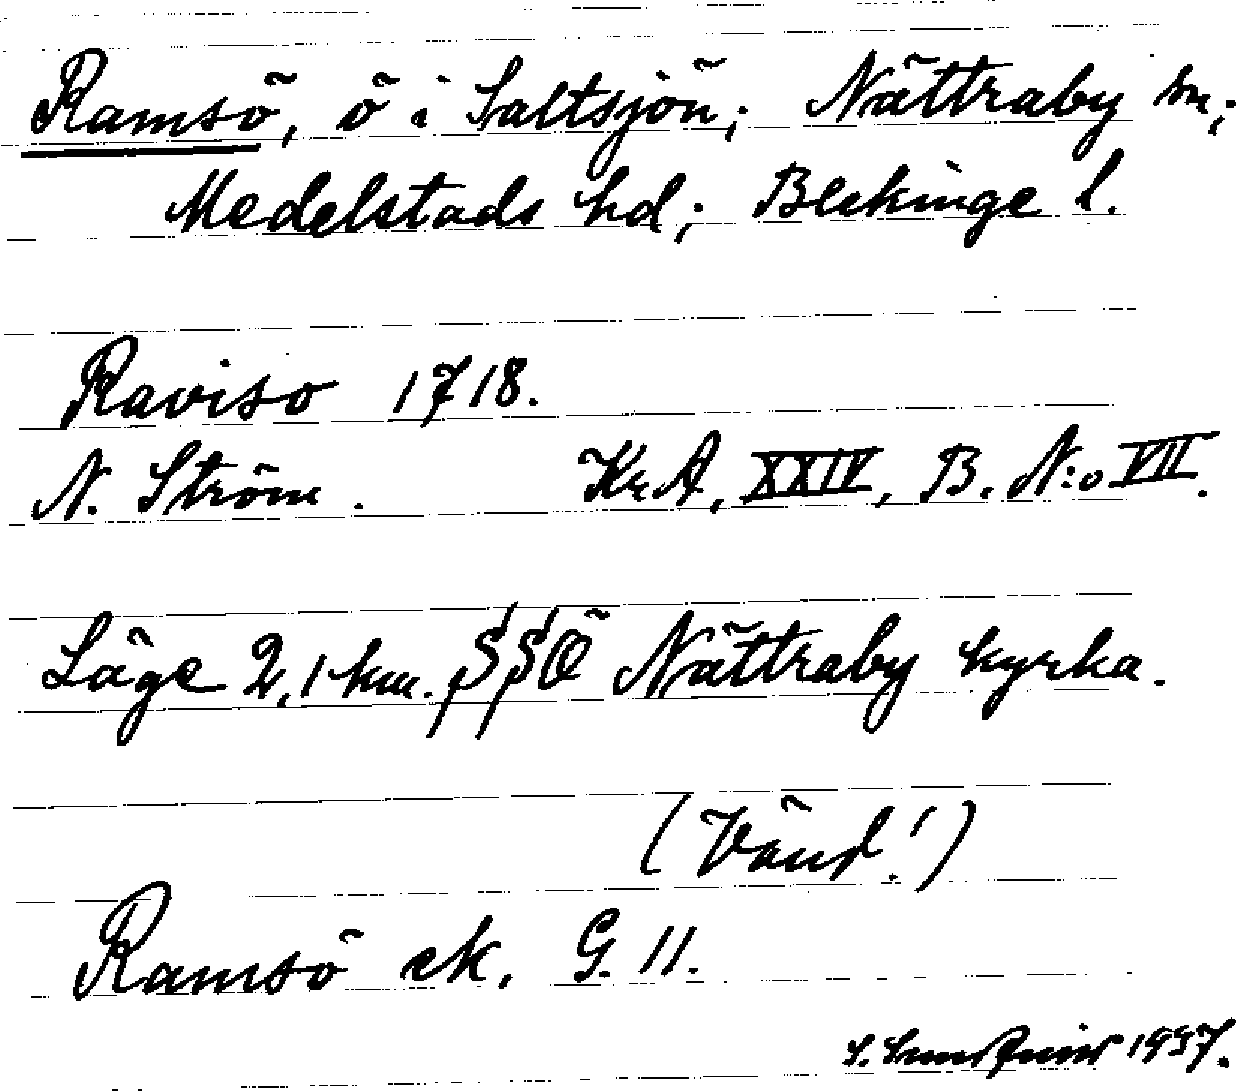 Ramsö, ö i Saltsjön; Nättraby sn;
Medelstads hd; Blekinge l.
Raviso 1718.
N. Ström. KrA, XXIV, B. N:o VII.
Läge 2,1 km. SSÖ Nättraby kyrka.
(Vänd!)
Ramsö ek. G. 11.
S. 1937.